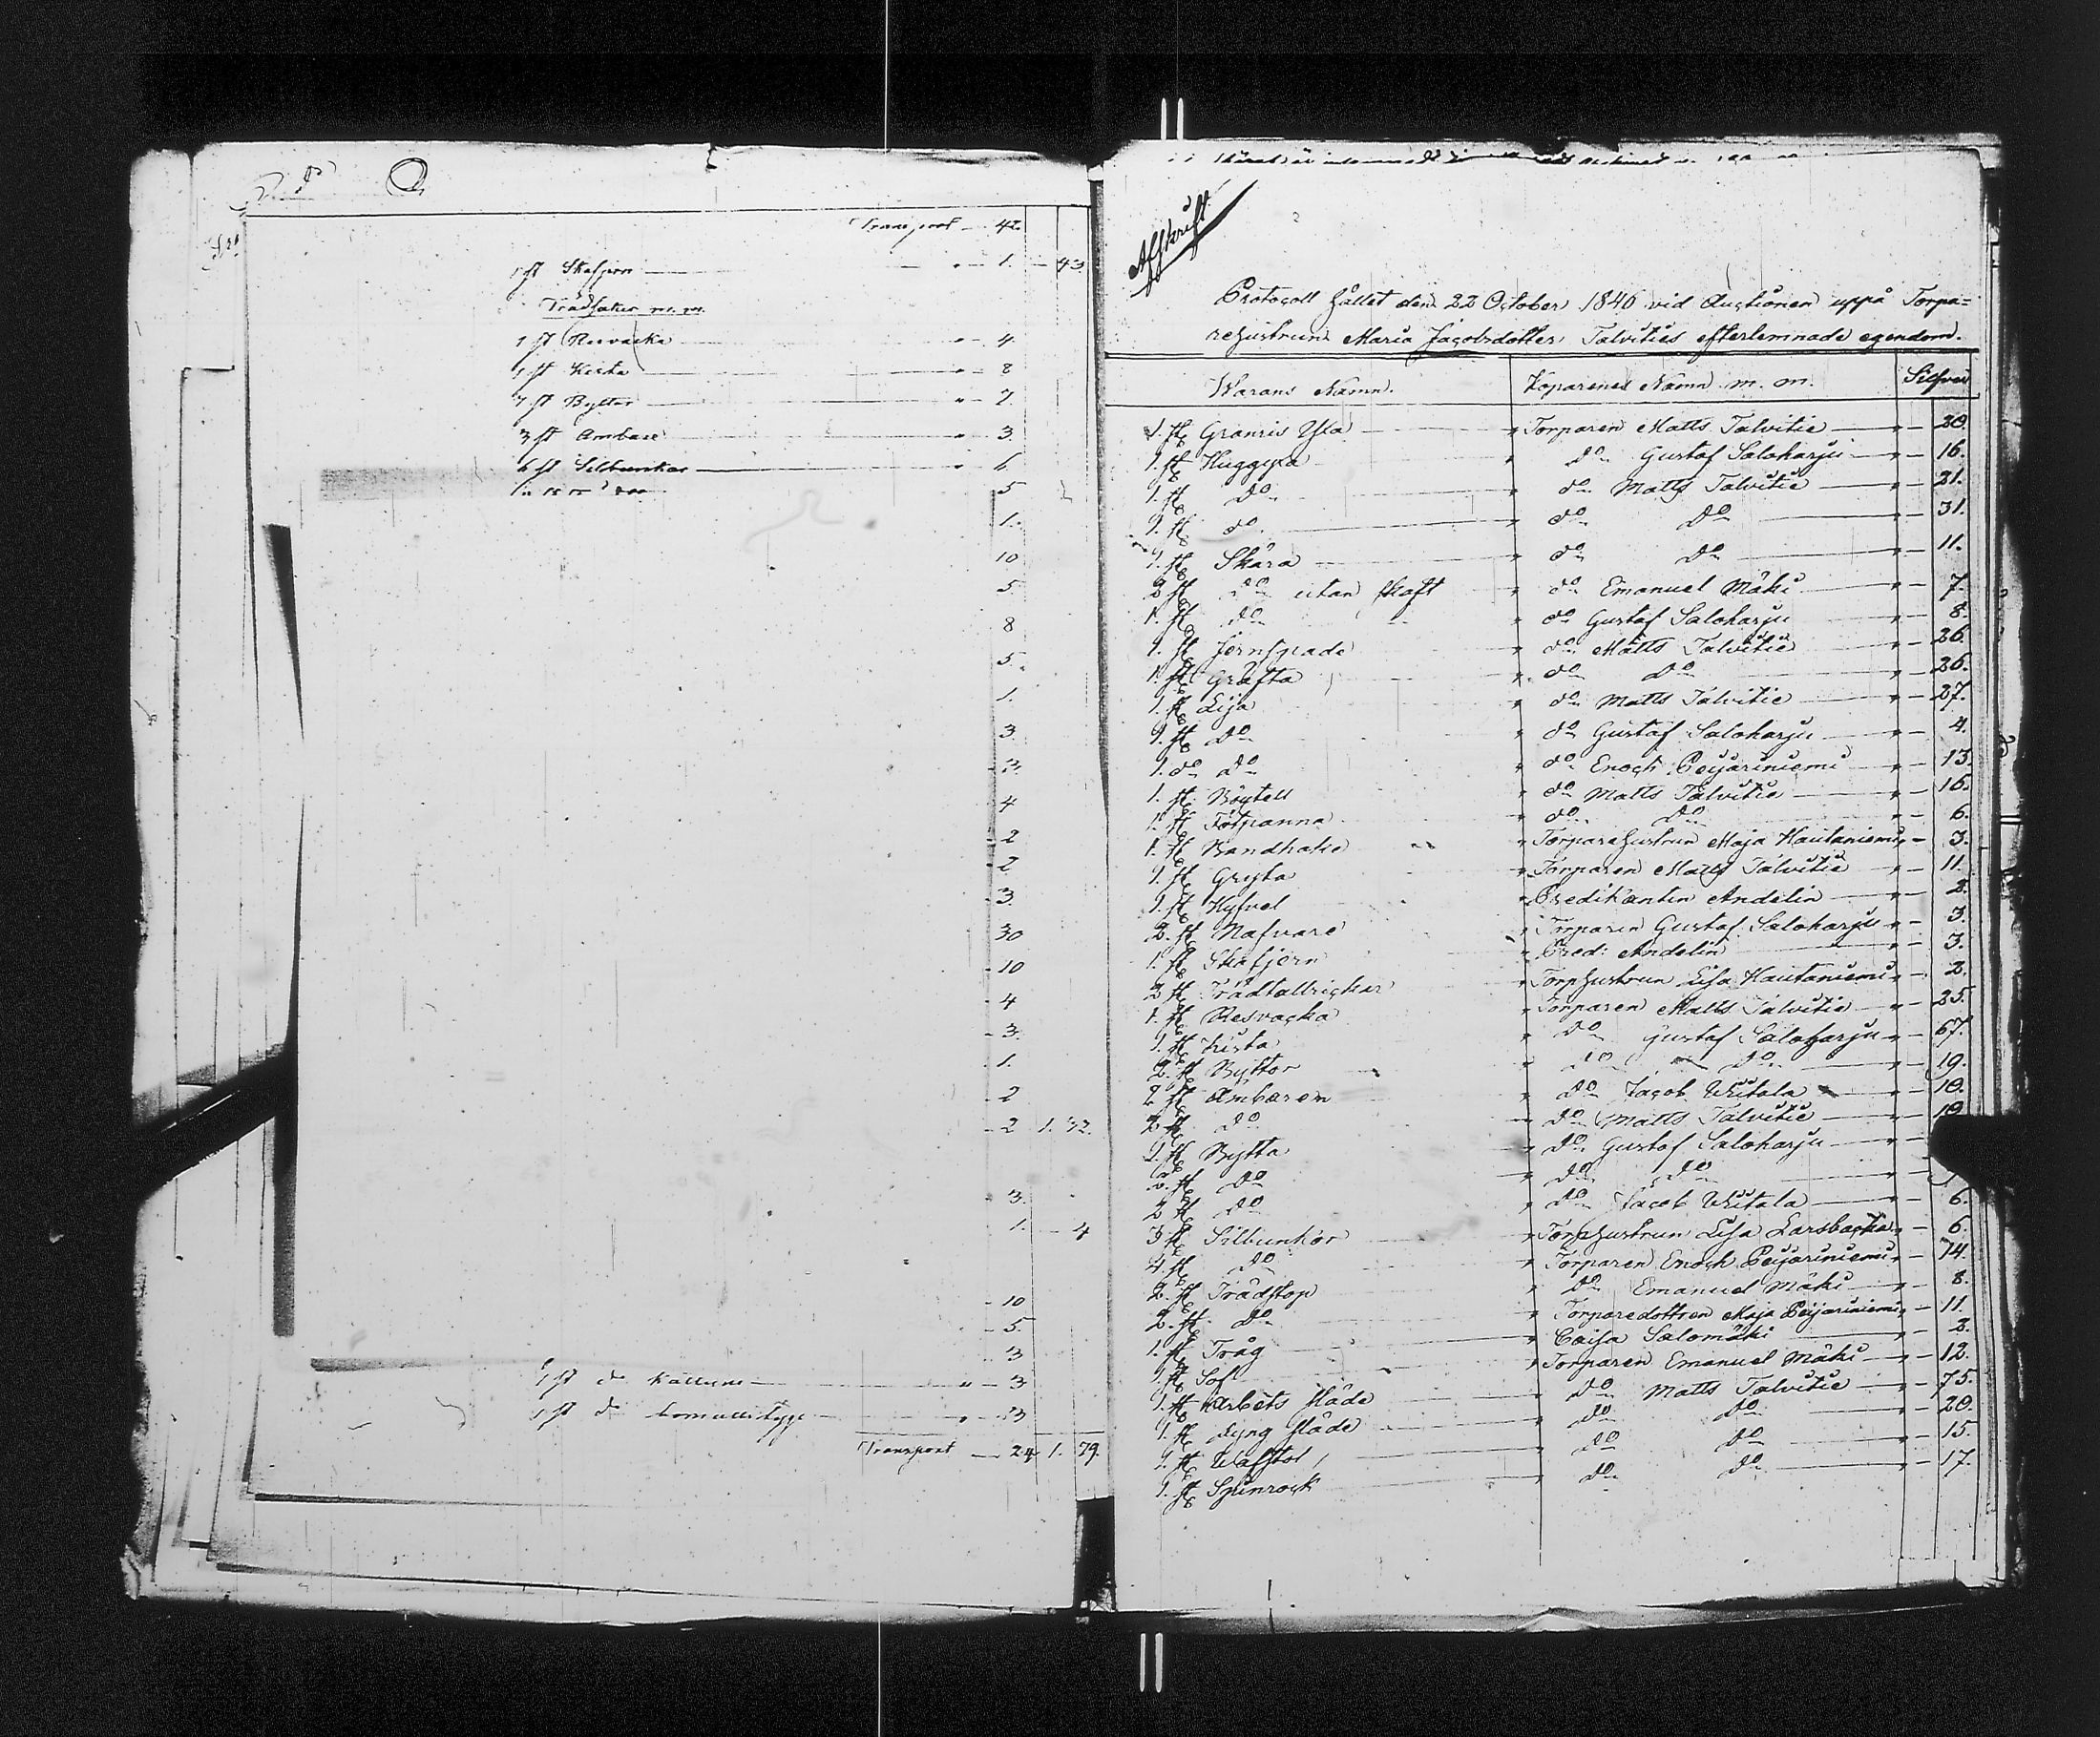 Transport — 42.
1 st Skafjern — " — 1. — 43.
Trädsaker m. m.
1 st Resvacka — " — 4.
1 st Kista — " — 8
7 st Byttor — " — 7.
3 st Ämbare — " — 3.
6 st Silbunkar — " — 6.
5
1.
10
5
8
5.
1.
3.
3.
4
2
2
3.
30
10
4
3.
1.
2
2 1. 32.
3.
1. — 4
10
5.
3
1 st do Kattuns — " — 3
1 st do bomullstygs — " — 3
Transport — 24 1. 79.
Afskrift
Protocoll hållet den 22 October 1846 vid Auctionen uppå Torpa=
rehustrun Maria Jacobsdotter Talvities efterlemnade egendom.
Warans Namn. Köparenes Namn m. m. Silfver
1. st Granris Yxa — " Torparen Matts Talvitie — " — 20.
1. st Huggyxa " do Gustaf Saloharju — " — 16.
1. st do " do Matts Talvitie — " — 21.
1. st do — " do do — " — 31.
1. st Skära — " do do — " — 11.
2 st do utan skaft " do Emanuel Mäki — " — 7.
1. st do " do Gustaf Saloharju — " — 8.
1. st Jernspade " do Matts Talvitie — " — 26.
1. st Gräfta " do do — " — 26.
1. st Lija " do Matts Talvitie — " — 27.
1. st do " do Gustaf Saloharju — " — 4.
1. do do " do Enoch Peijariniemi — " — 13.
1. st " do Matts Talvitie — " — 16.
1. st Fotpanna " do do — " — 6.
1. st Bandhake " Torparehustrun Maja Hautaniemi " — 3.
1. st Gryta " Torparen Matts Talvitie — " — 11.
1. st Hyfvel " Predikanten Andelin — " — 2.
2. st Nafvare " Torparen Gustaf Saloharju " — 3.
1. st Skafjern " Pred: Andelin — " — 3.
2 st Trädtallrickar " Torphustrun Lisa Hautaniemi " — 2.
1. st Resvacka " Torparen Matts Talvitie — " — 25.
1. st Kista " do Gustaf Saloharju " — 67.
2. st Byttor " do do — " — 19.
2 st Ämbaren " do Jacob Wiitala " — 10.
2 st do — do Matts Talvitie — " — 10
1. st Bytta " do Gustaf Saloharju — " —
2. st do " do do — " —
2 st do " do Jacob Wiitala — " — 6.
3 st Silbunkor " Torphustrun Lisa Larsbacka " — 6.
4. st do " Torparen Enoch Peijariniemi " — 14.
2. st Trädstop " do Emanuel Mäki — " — 8.
2. st do " Torparedottren Maja Peijariniemi " — 11.
1. st Tråg — " Caisa Salomäki — " — 2.
1. st " Torparen Emanuel Mäki — " — 12.
1. st Arbets släde — " do Matts Talvitie — " — 75.
1. st dyng släde — " do do — " — 20.
1. st Wäfstol — " do do — " — 15.
1. st Spinrock — " do do — " — 17.